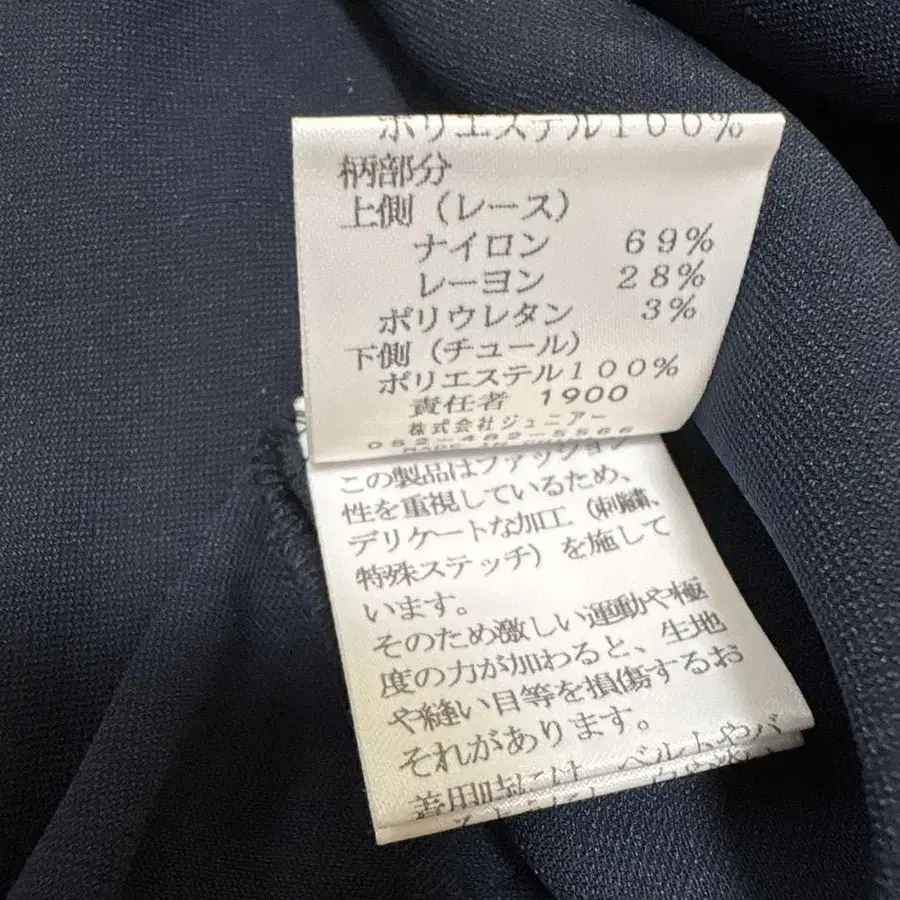 ポリエステル100%
柄部分
上側（レース）
ナイロン 69%
レーヨン 28%
ポリウレタン 3%
下側（チュール）
ポリエステル100%
責任者 1900
株式会社ジュニアー
052-482-5566
MADE
この製品はファッション
性を重視しているため、
デリケートな加工（刺繍、
特殊ステッチ）を施して
います。
そのため激しい運動や極
度の力が加わると、生地
や縫い目等を損傷するお
それがあります。
着用時には、ベルトやバ